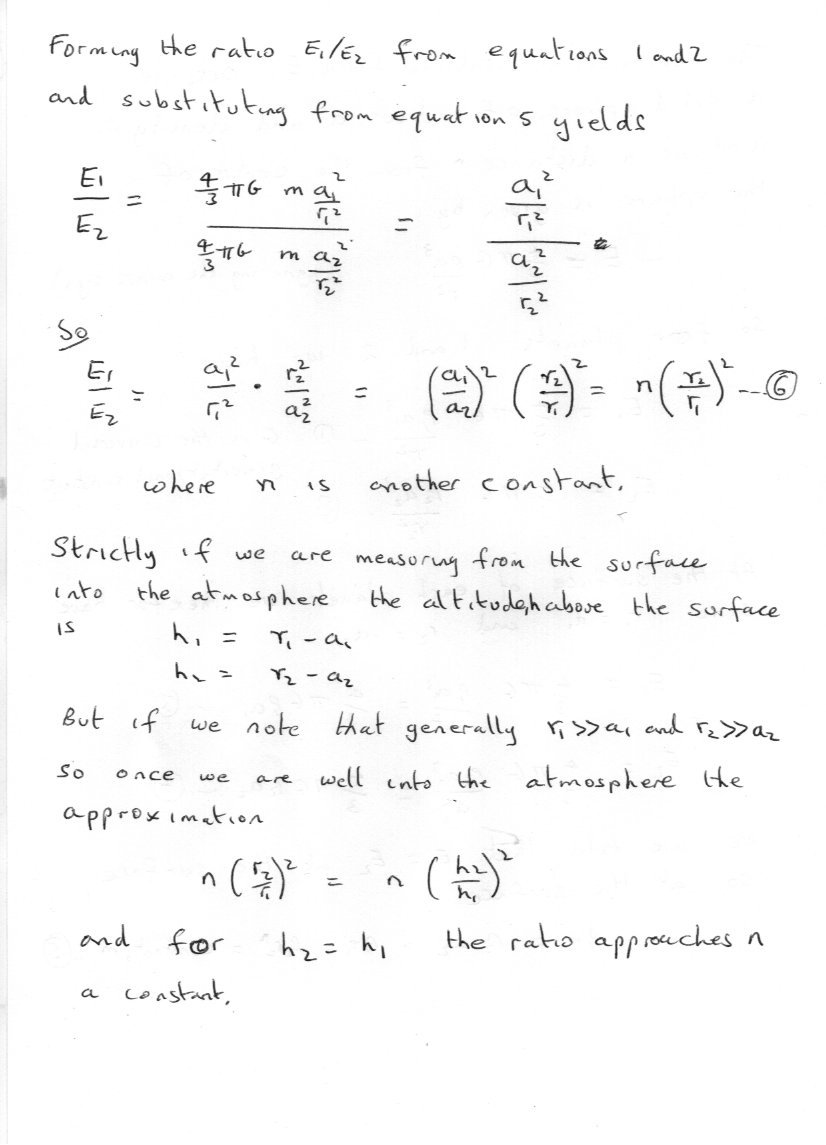 Forming the ratio E₁/E₂ from equations 1 and 2
and substituting from equation 5 yields
E₁/E₂ = (4/3 πG m a₁²/r₁²) / (4/3 πG m a₂²/r₂²) = (a₁²/r₁²) / (a₂²/r₂²)
So
E₁/E₂ = a₁²/r₁² · r₂²/a₂² = (a₁/a₂)² (r₂/r₁)² = n(r₂/r₁)² --- ⑥
where n is another constant.
Strictly if we are measuring from the surface
into the atmosphere the altitude, h above the surface
is h₁ = r₁ - a₁
h₂ = r₂ - a₂
But if we note that generally r₁ >> a₁ and r₂ >> a₂
so once we are well into the atmosphere the
approximation
n (r₂/r₁)² = n (h₂/h₁)²
and for h₂ = h₁ the ratio approaches n
a constant.